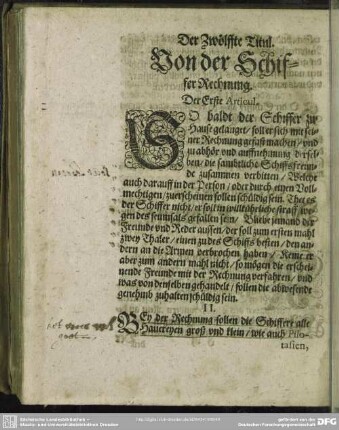 Der Zwölffte Titul.
Von der Schif-
fer Rechnung.
Der Erste Articul.
SO baldt der Schiffer zu
Hause gelanget / soll er sich mit sei-
ner Rechnung gefast machen / vnd
zu abhör vnd auffnehmung dersel-
ben / die sambtliche Schiffsfreun-
de zusammen verbitten / Welche
auch darauff in der Person / oder durch einen Voll-
mechtigen / zuerscheinen sollen schüldig sein. Thet es
der Schiffer nicht / er soll in willkührliche straff / we-
gen des seumsals gefallen sein / Bliebe jemand der
Freunde vnd Reder aussen / der soll zum ersten mahl
zwey Thaler / einen zu des Schiffs besten / den an-
dern an die Armen verbrochen haben / Keme er
aber zum andern mahl nicht / so mögen die erschei-
nende Freunde mit der Rechnung verfahren / vnd
was von denselben gehandelt / sollen die abwesende
genehmb zuhalten schüldig sein.
II.
BEy der Rechnung sollen die Schiffere alle
Hauereyen groß vnd klein / wie auch Pilo-
tasien,